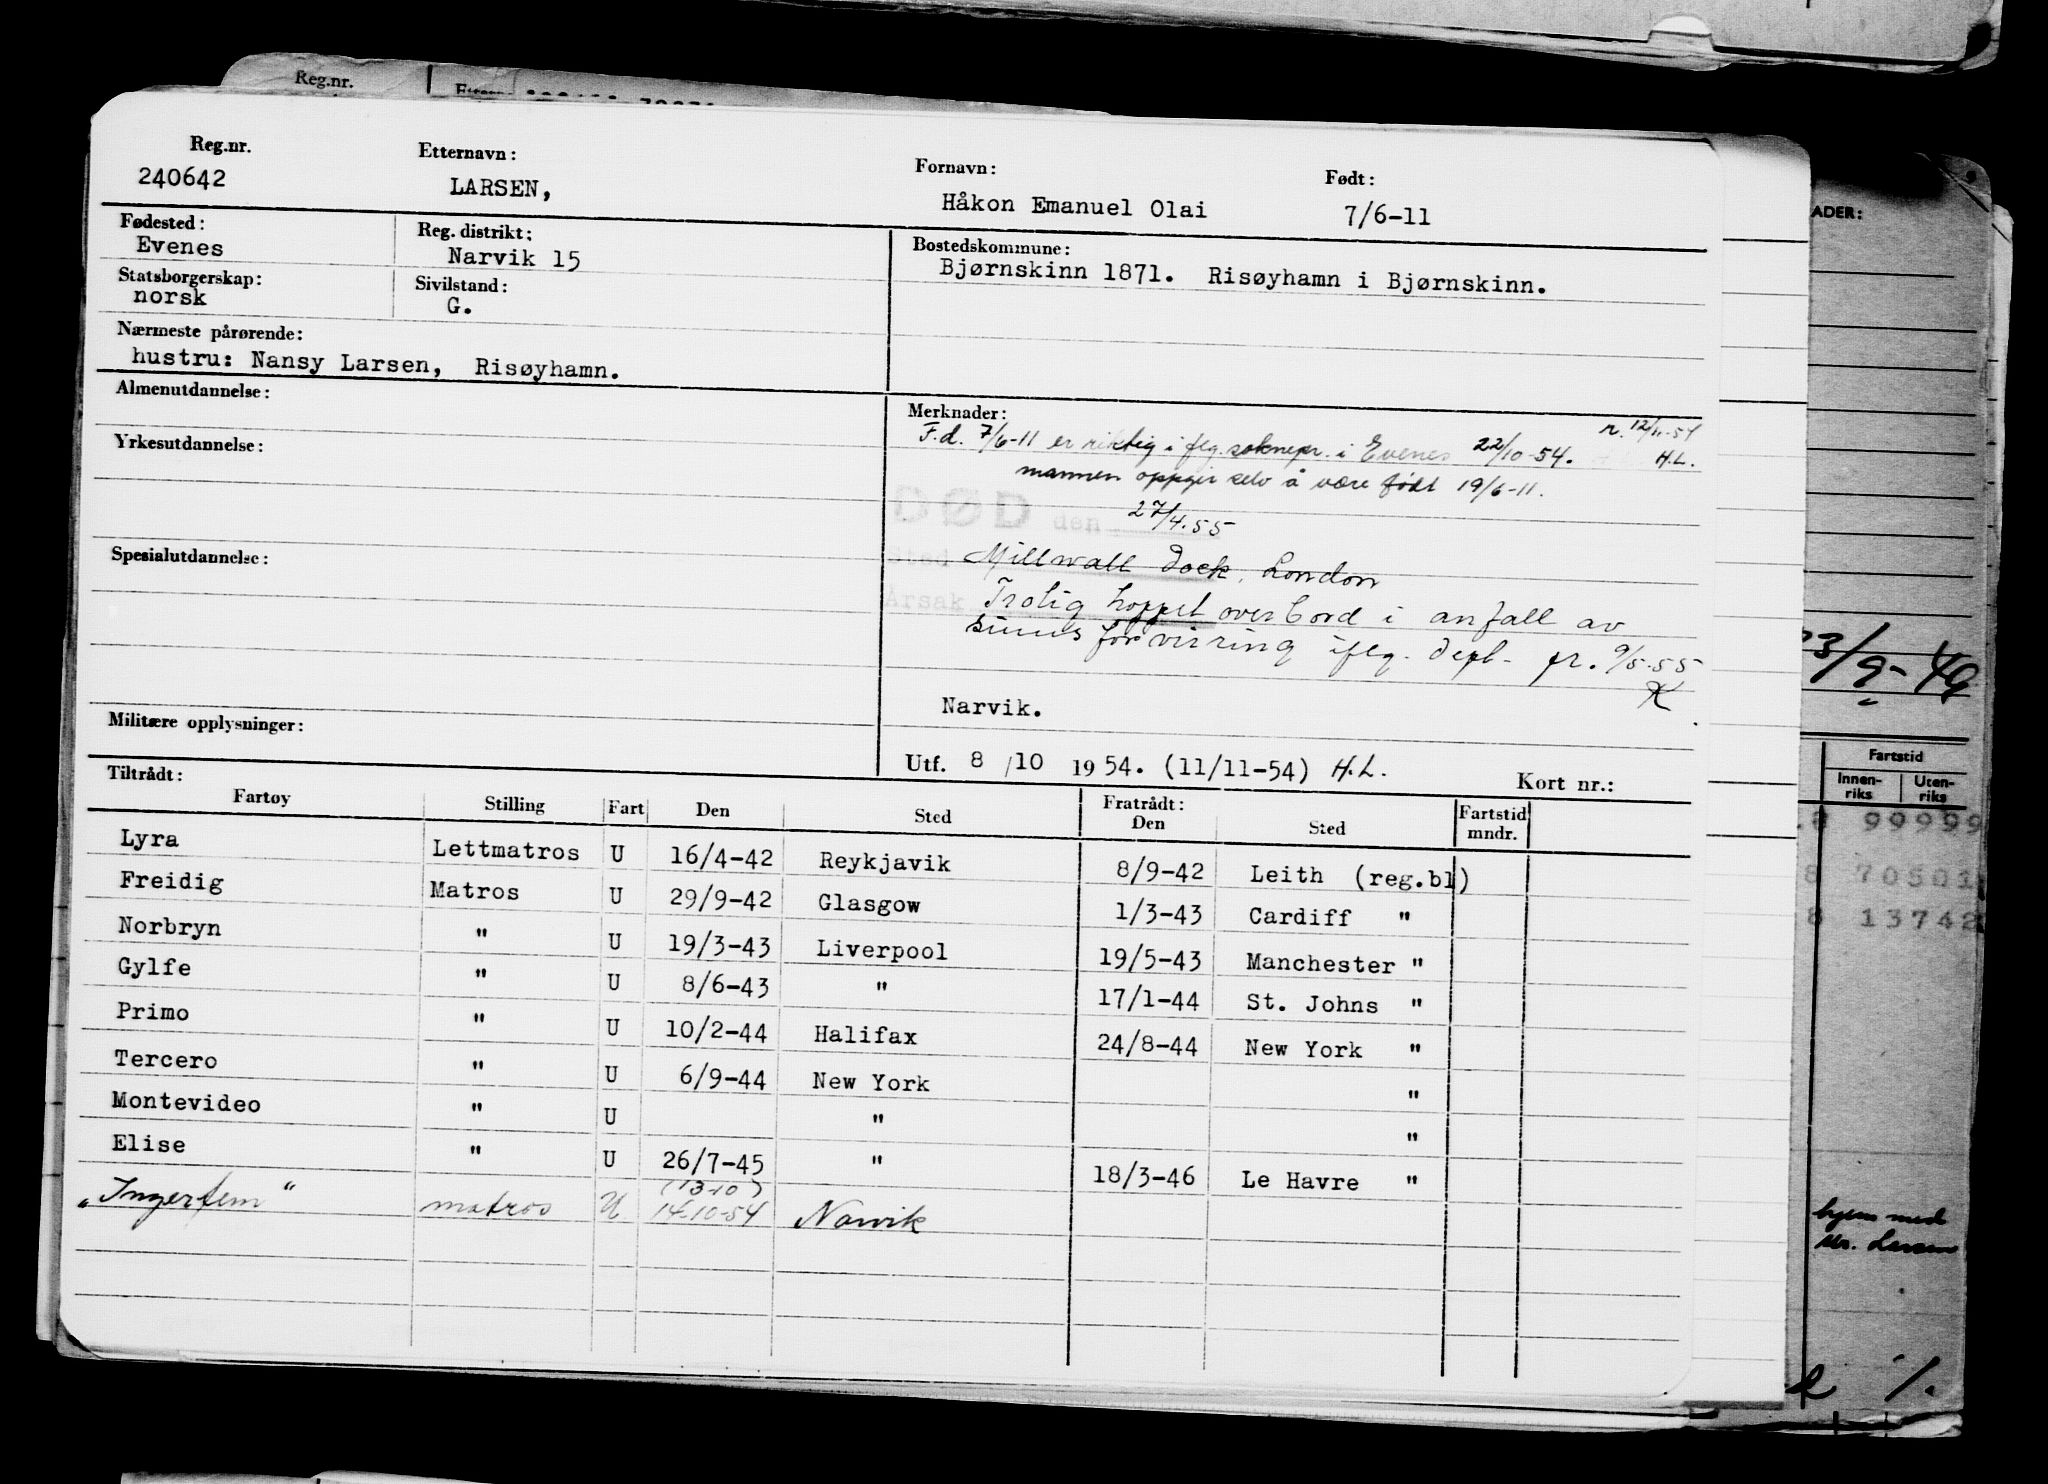 Reg.nr.
Reg.nr. Etternavn: Fornavn: Født:
240642 LARSEN, Håkon Emanuel Olai 7/6-11
Fødested: Reg. distrikt: Bostedskommune:
Evenes Narvik 15 Bjørnskinn 1871. Risøyhamn i Bjørnskinn.
Statsborgerskap: Sivilstand:
norsk G.
Nærmeste pårørende:
hustru: Nansy Larsen, Risøyhamn.
Almenutdannelse: Merknader:
r. 12/11-54
F.d. 7/6-11 er riktig i flg. soknepr. i Evenes 22/10-54. H.L.
mannen oppgir selv å være født 19/6-11.
Yrkesutdannelse:
DØD den 27/4.55
Sted Millwall Dock, London
Spesialutdannelse:
Årsak Trolig hoppet overbord i anfall av
sinnsforvirring iflg. dept. pr. 9/5-55
K
Narvik.
Militære opplysninger:
Utf. 8/10 1954. (11/11-54) H.L. Kort nr.:
Tiltrådt: Fratrådt:
Fartøy Stilling Fart Den Sted Den Sted Fartstid mndr.
Lyra Lettmatros U 16/4-42 Reykjavik 8/9-42 Leith (reg.bl)
Freidig Matros U 29/9-42 Glasgow 1/3-43 Cardiff "
Norbryn " U 19/3-43 Liverpool 19/5-43 Manchester "
Gylfe " U 8/6-43 " 17/1-44 St. Johns "
Primo " U 10/2-44 Halifax 24/8-44 New York "
Tercero " U 6/9-44 New York "
Montevideo " U " "
Elise " U 26/7-45 " 18/3-46 Le Havre "
(13-10)
"Ingerfem" matros U 14-10-54 Narvik
ADER:
23/9-49
Fartstid
Innen-riks Uten-riks
8 99999
8 70501
8 13742
hjem med
Larsen